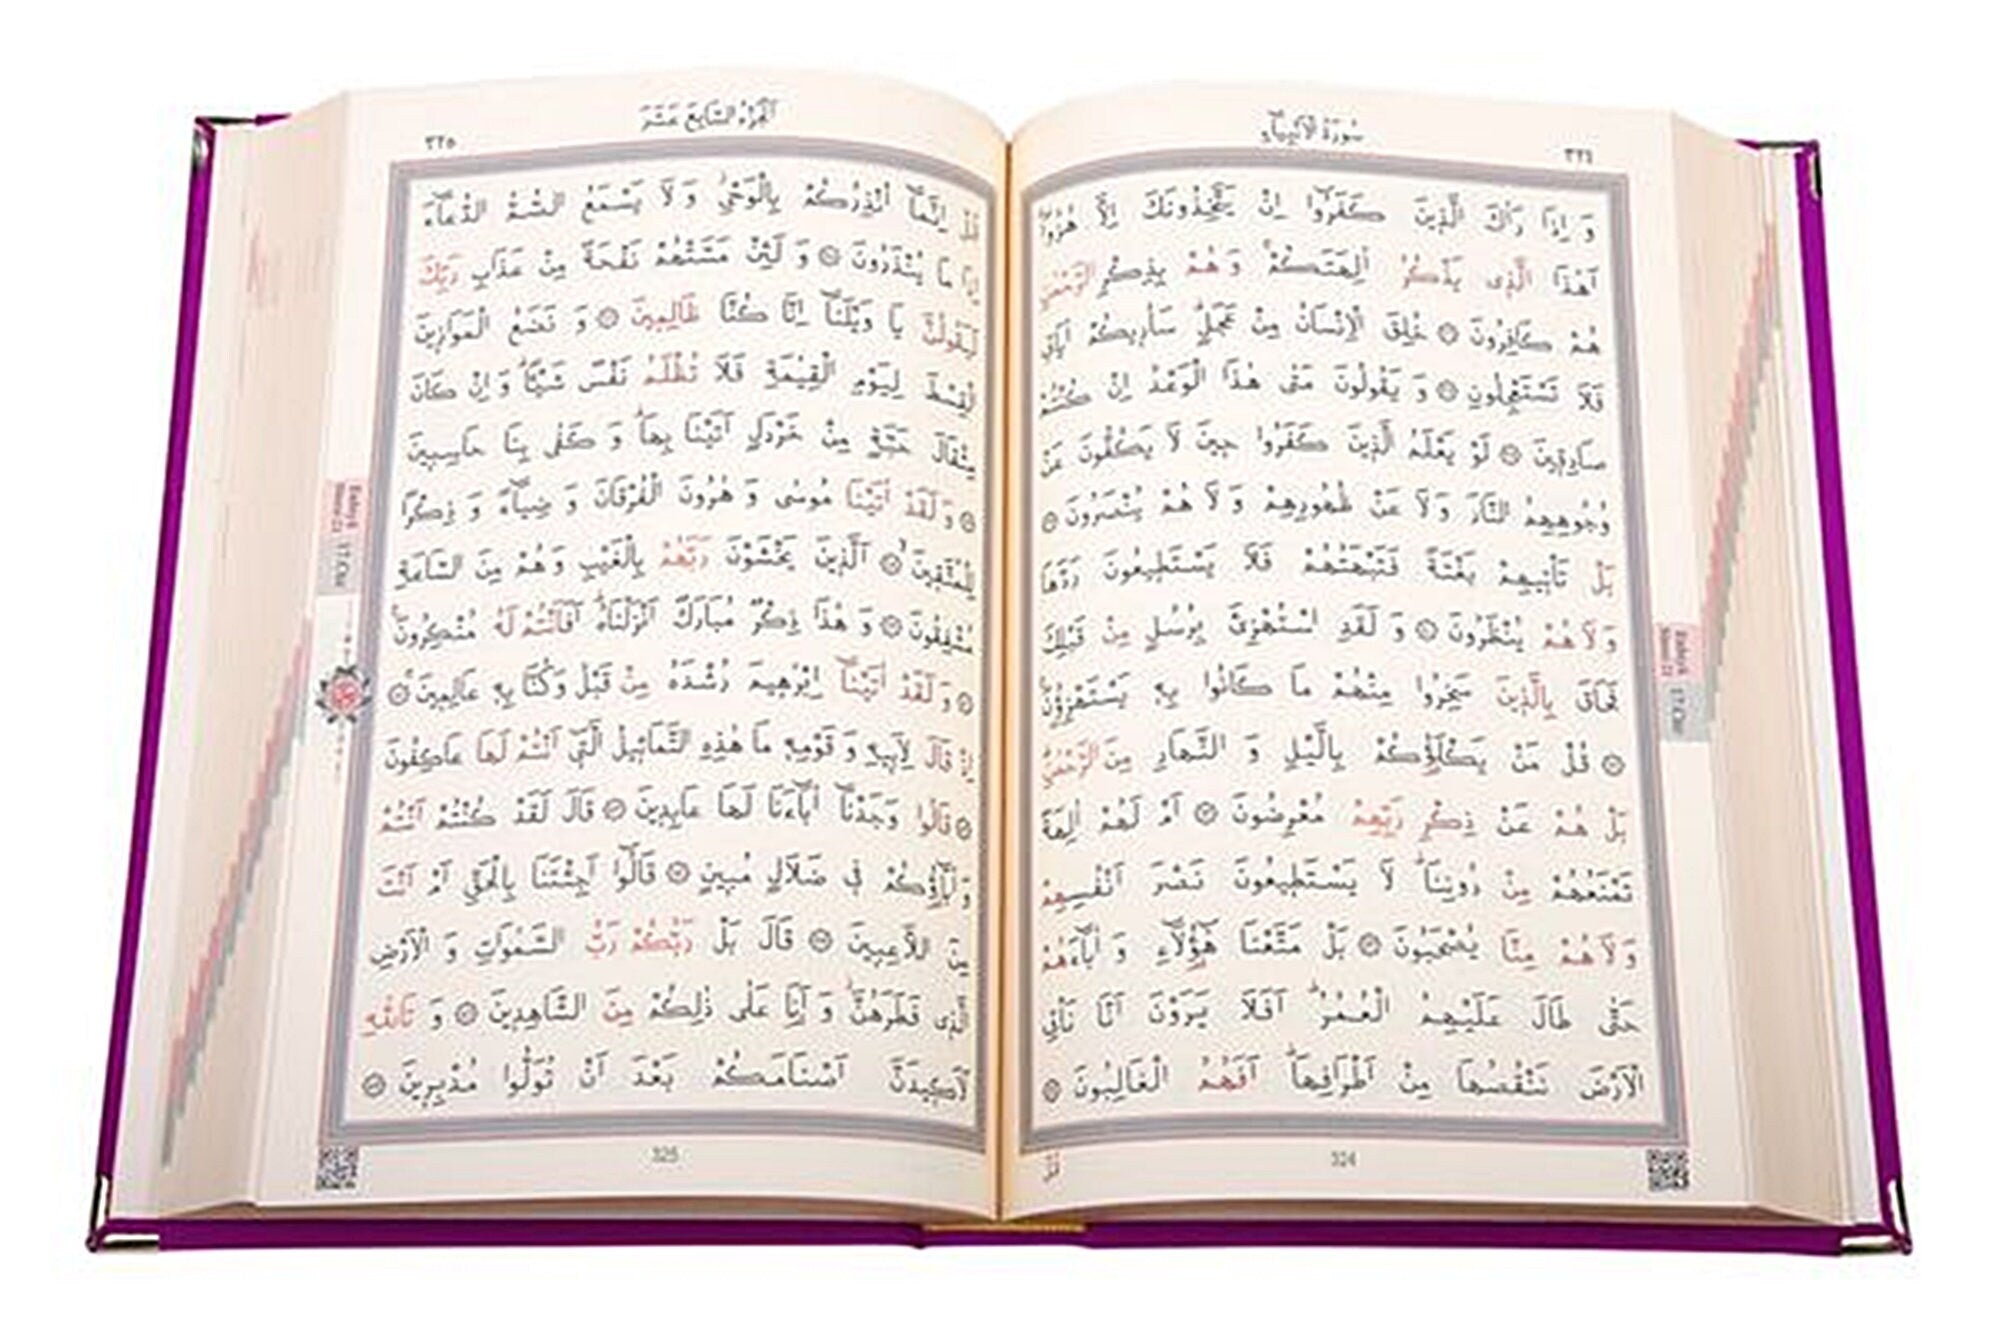 سُورَةُ الْاَنْبِيَاءِ
وَ اِذَا رَاٰكَ الَّذِينَ كَفَرُٓوا اِنْ يَتَّخِذُونَكَ اِلَّا هُزُوًاۜ
اَهٰذَا الَّذِى يَذْكُرُ اٰلِهَتَكُمْۚ وَ هُمْ بِذِكْرِ الرَّحْمٰنِ
هُمْ كَافِرُونَ خُلِقَ الْاِنْسَانُ مِنْ عَجَلٍۜ سَاُرِيكُمْ اٰيَاتِى
فَلَا تَسْتَعْجِلُونِ وَ يَقُولُونَ مَتٰى هٰذَا الْوَعْدُ اِنْ كُنْتُمْ
صَادِقِينَ لَوْ يَعْلَمُ الَّذِينَ كَفَرُوا حِينَ لَا يَكُفُّونَ عَنْ
وُجُوهِهِمُ النَّارَ وَ لَا عَنْ ظُهُورِهِمْ وَ لَا هُمْ يُنْصَرُونَ
بَلْ تَأْتِيهِمْ بَغْتَةً فَتَبْهَتُهُمْ فَلَا يَسْتَطِيعُونَ رَدَّهَا
وَ لَا هُمْ يُنْظَرُونَ وَ لَقَدِ اسْتُهْزِئَ بِرُسُلٍ مِنْ قَبْلِكَ
فَحَاقَ بِالَّذِينَ سَخِرُوا مِنْهُمْ مَا كَانُوا بِهِ يَسْتَهْزِؤُنَ
قُلْ مَنْ يَكْلَؤُكُمْ بِالَّيْلِ وَ النَّهَارِ مِنَ الرَّحْمٰنِۜ
بَلْ هُمْ عَنْ ذِكْرِ رَبِّهِمْ مُعْرِضُونَ اَمْ لَهُمْ اٰلِهَةٌ
تَمْنَعُهُمْ مِنْ دُونِنَاۜ لَا يَسْتَطِيعُونَ نَصْرَ اَنْفُسِهِمْ
وَ لَا هُمْ مِنَّا يُصْحَبُونَ بَلْ مَتَّعْنَا هٰٓؤُلَٓاءِ وَ اٰبَٓاءَهُمْ
حَتّٰى طَالَ عَلَيْهِمُ الْعُمُرُۜ اَفَلَا يَرَوْنَ اَنَّا نَأْتِى
الْاَرْضَ نَنْقُصُهَا مِنْ اَطْرَافِهَاۜ اَفَهُمُ الْغَالِبُونَ
324
قُلْ
الْجُزْءُ السَّابِعَ عَشَرَ
٣٢٥
قُلْ اِنَّمَٓا اُنْذِرُكُمْ بِالْوَحْىِۘ وَ لَا يَسْمَعُ الصُّمُّ الدُّعَٓاءَ
اِذَا مَا يُنْذَرُونَ وَ لَئِنْ مَسَّتْهُمْ نَفْحَةٌ مِنْ عَذَابِ رَبِّكَ
لَيَقُولُنَّ يَا وَيْلَنَٓا اِنَّا كُنَّا ظَالِمِينَ وَ نَضَعُ الْمَوَازِينَ
الْقِسْطَ لِيَوْمِ الْقِيٰمَةِ فَلَا تُظْلَمُ نَفْسٌ شَيْئًاۜ وَ اِنْ كَانَ
مِثْقَالَ حَبَّةٍ مِنْ خَرْدَلٍ اَتَيْنَا بِهَاۜ وَ كَفٰى بِنَا حَاسِبِينَ
وَ لَقَدْ اٰتَيْنَا مُوسٰى وَ هٰرُونَ الْفُرْقَانَ وَ ضِيَٓاءً وَ ذِكْرًا
لِلْمُتَّقِينَ اَلَّذِينَ يَخْشَوْنَ رَبَّهُمْ بِالْغَيْبِ وَ هُمْ مِنَ السَّاعَةِ
مُشْفِقُونَ وَ هٰذَا ذِكْرٌ مُبَارَكٌ اَنْزَلْنَاهُۜ اَفَاَنْتُمْ لَهُ مُنْكِرُونَ
وَ لَقَدْ اٰتَيْنَٓا اِبْرٰهِيمَ رُشْدَهُ مِنْ قَبْلُ وَ كُنَّا بِهِ عَالِمِينَ
اِذْ قَالَ لِاَبِيهِ وَ قَوْمِهِ مَا هٰذِهِ التَّمَاثِيلُ الَّتِٓى اَنْتُمْ لَهَا عَاكِفُونَ
قَالُوا وَجَدْنَٓا اٰبَٓاءَنَا لَهَا عَابِدِينَ قَالَ لَقَدْ كُنْتُمْ اَنْتُمْ
وَ اٰبَٓاؤُكُمْ فِى ضَلَالٍ مُبِينٍ قَالُٓوا اَجِئْتَنَا بِالْحَقِّ اَمْ اَنْتَ
مِنَ اللَّاعِبِينَ قَالَ بَلْ رَبُّكُمْ رَبُّ السَّمٰوَاتِ وَ الْاَرْضِ
الَّذِى فَطَرَهُنَّۘ وَ اَنَا عَلٰى ذٰلِكُمْ مِنَ الشَّاهِدِينَ وَ تَاللّٰهِ
لَاَكِيدَنَّ اَصْنَامَكُمْ بَعْدَ اَنْ تُوَلُّوا مُدْبِرِينَ
325